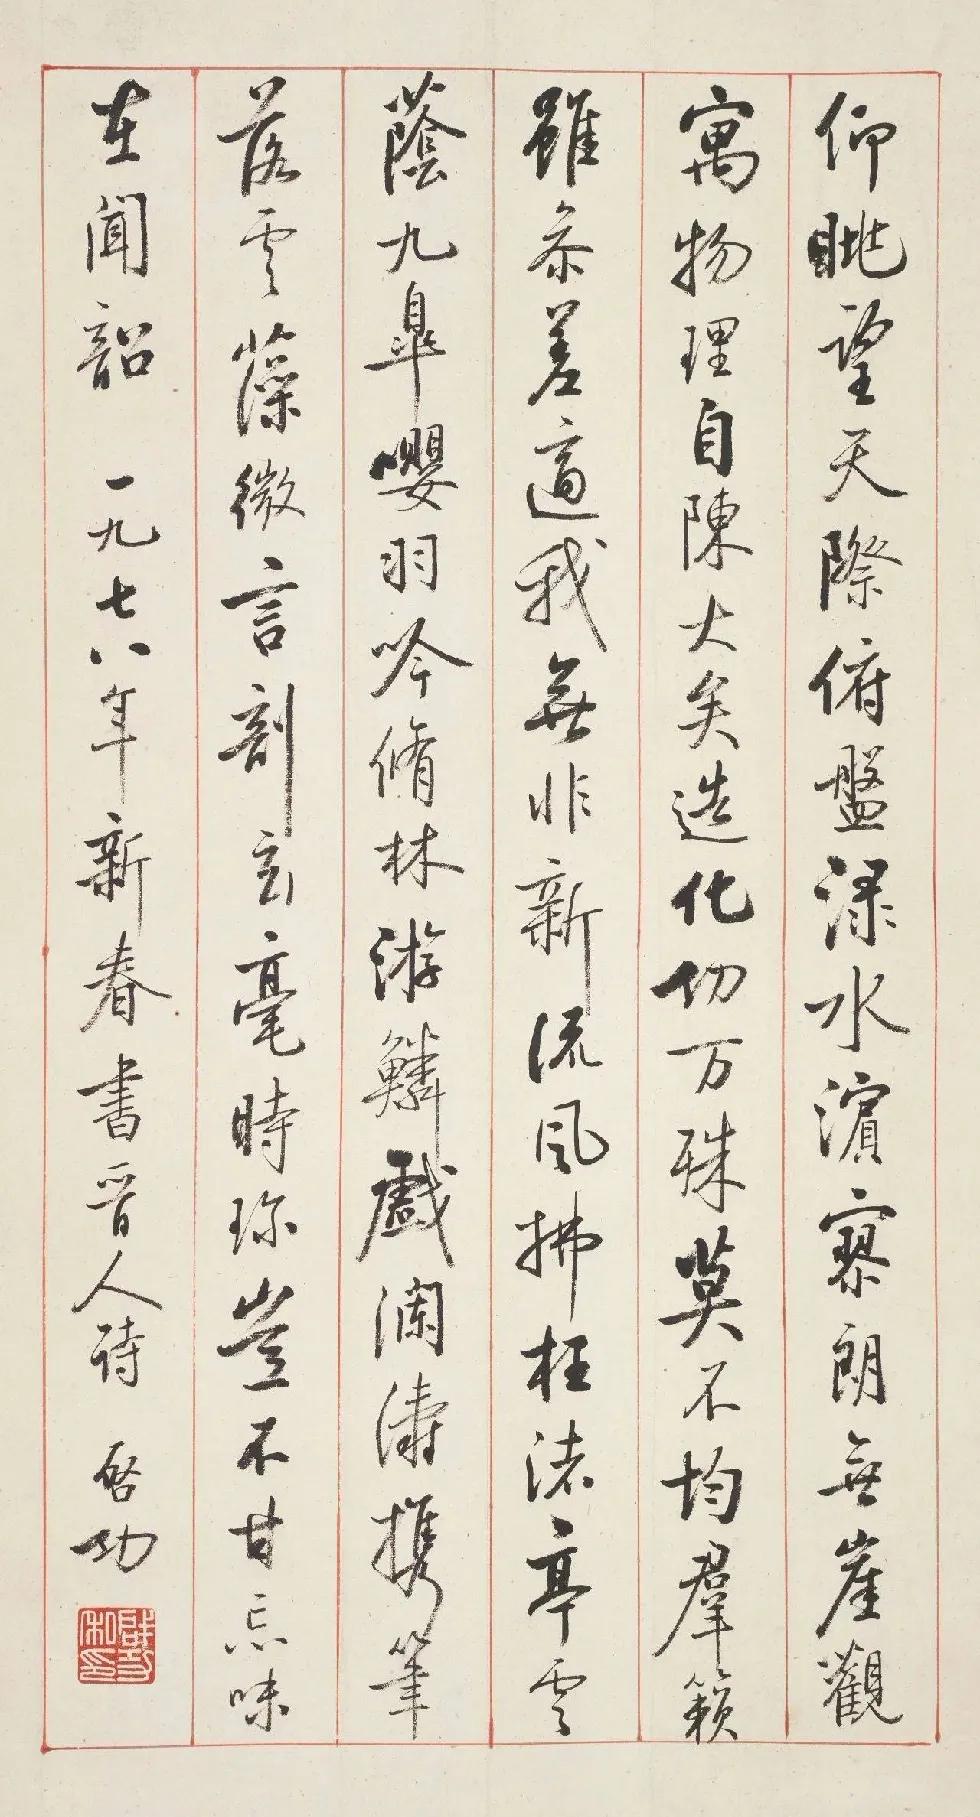 仰眺望天際俯盤淥水濱寥朗無崖觀
寓物理自陳大矣造化功万殊莫不均羣籟
雖參差適我無非新流風拂枉渚亭雲
蔭九臯嚶羽吟脩林游鱗戲瀾濤携筆
落雲藻微言剖玄毫時珍豈不甘忘味
在聞韶 一九七八年新春書晉人詩 啓功